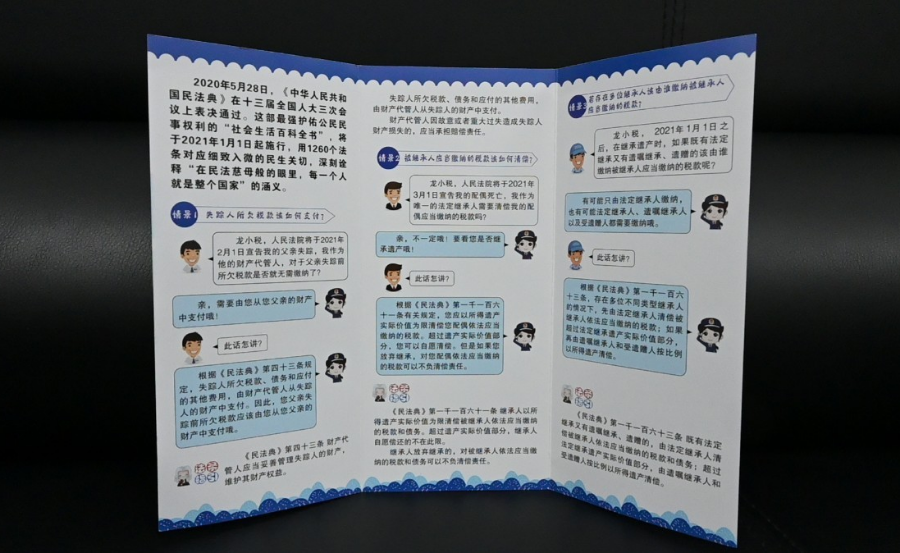 2020年5月28日，《中华人民共和
国民法典》在十三届全国人大三次会
议上表决通过。这部最强护佑公民民
事权利的“社会生活百科全书”，将
于2021年1月1日起施行，用1260个法
条对应细致入微的民生关切，深刻诠
释“在民法慈母般的眼里，每一个人
就是整个国家”的涵义。
情景1 失踪人所欠税款该如何支付？
龙小税，人民法院将于2021年
2月1日宣告我的父亲失踪，我作为
他的财产代管人，对于父亲失踪前
所欠税款是否就无需缴纳了？
亲，需要由您从您父亲的财产
中支付哦！
此话怎讲？
根据《民法典》第四十三条规
定，失踪人所欠税款、债务和应付
的其他费用，由财产代管人从失踪
人的财产中支付。因此，您父亲失
踪前所欠税款应该由您从您父亲的
财产中支付哦。
《民法典》第四十三条 财产代
管人应当妥善管理失踪人的财产，
维护其财产权益。
失踪人所欠税款、债务和应付的其他费用，
由财产代管人从失踪人的财产中支付。
财产代管人因故意或者重大过失造成失踪人
财产损失的，应当承担赔偿责任。
情景2 被继承人应当缴纳的税款该如何清偿？
龙小税，人民法院将于2021年
3月1日宣告我的配偶死亡，我作为
唯一的法定继承人需要清偿我的配
偶应当缴纳的税款吗？
亲，不一定哦！要看您是否继
承遗产哦！
此话怎讲？
根据《民法典》第一千一百六
十一条有关规定，您应以所得遗产
实际价值为限清偿您配偶依法应当
缴纳的税款。超过遗产实际价值部
分，您可以自愿清偿。但是如果您
放弃继承，对您配偶依法应当缴纳
的税款可以不负清偿责任。
《民法典》第一千一百六十一条 继承人以所
得遗产实际价值为限清偿被继承人依法应当缴纳
的税款和债务。超过遗产实际价值部分，继承人
自愿偿还的不在此限。
继承人放弃继承的，对被继承人依法应当缴
纳的税款和债务可以不负清偿责任。
情景3 若存在多位继承人该由谁缴纳被继承人
应当缴纳的税款？
龙小税，2021年1月1日之
后，在继承遗产时，如果既有法定
继承又有遗嘱继承、遗赠的该由谁
缴纳被继承人应当缴纳的税款呢？
有可能只由法定继承人缴纳，
也有可能法定继承人、遗嘱继承人
以及受遗赠人都需要缴纳哦。
此话怎讲？
根据《民法典》第一千一百六
十三条，存在多位不同类型继承人
的情况下，先由法定继承人清偿被
继承人依法应当缴纳的税款；如果
超过法定继承遗产实际价值部分，
再由遗嘱继承人和受遗赠人按比例
以所得遗产清偿。
《民法典》第一千一百六十三条 既有法定
继承又有遗嘱继承、遗赠的，由法定继承人清
偿被继承人依法应当缴纳的税款和债务；超过
法定继承遗产实际价值部分，由遗嘱继承人和
受遗赠人按比例以所得遗产清偿。